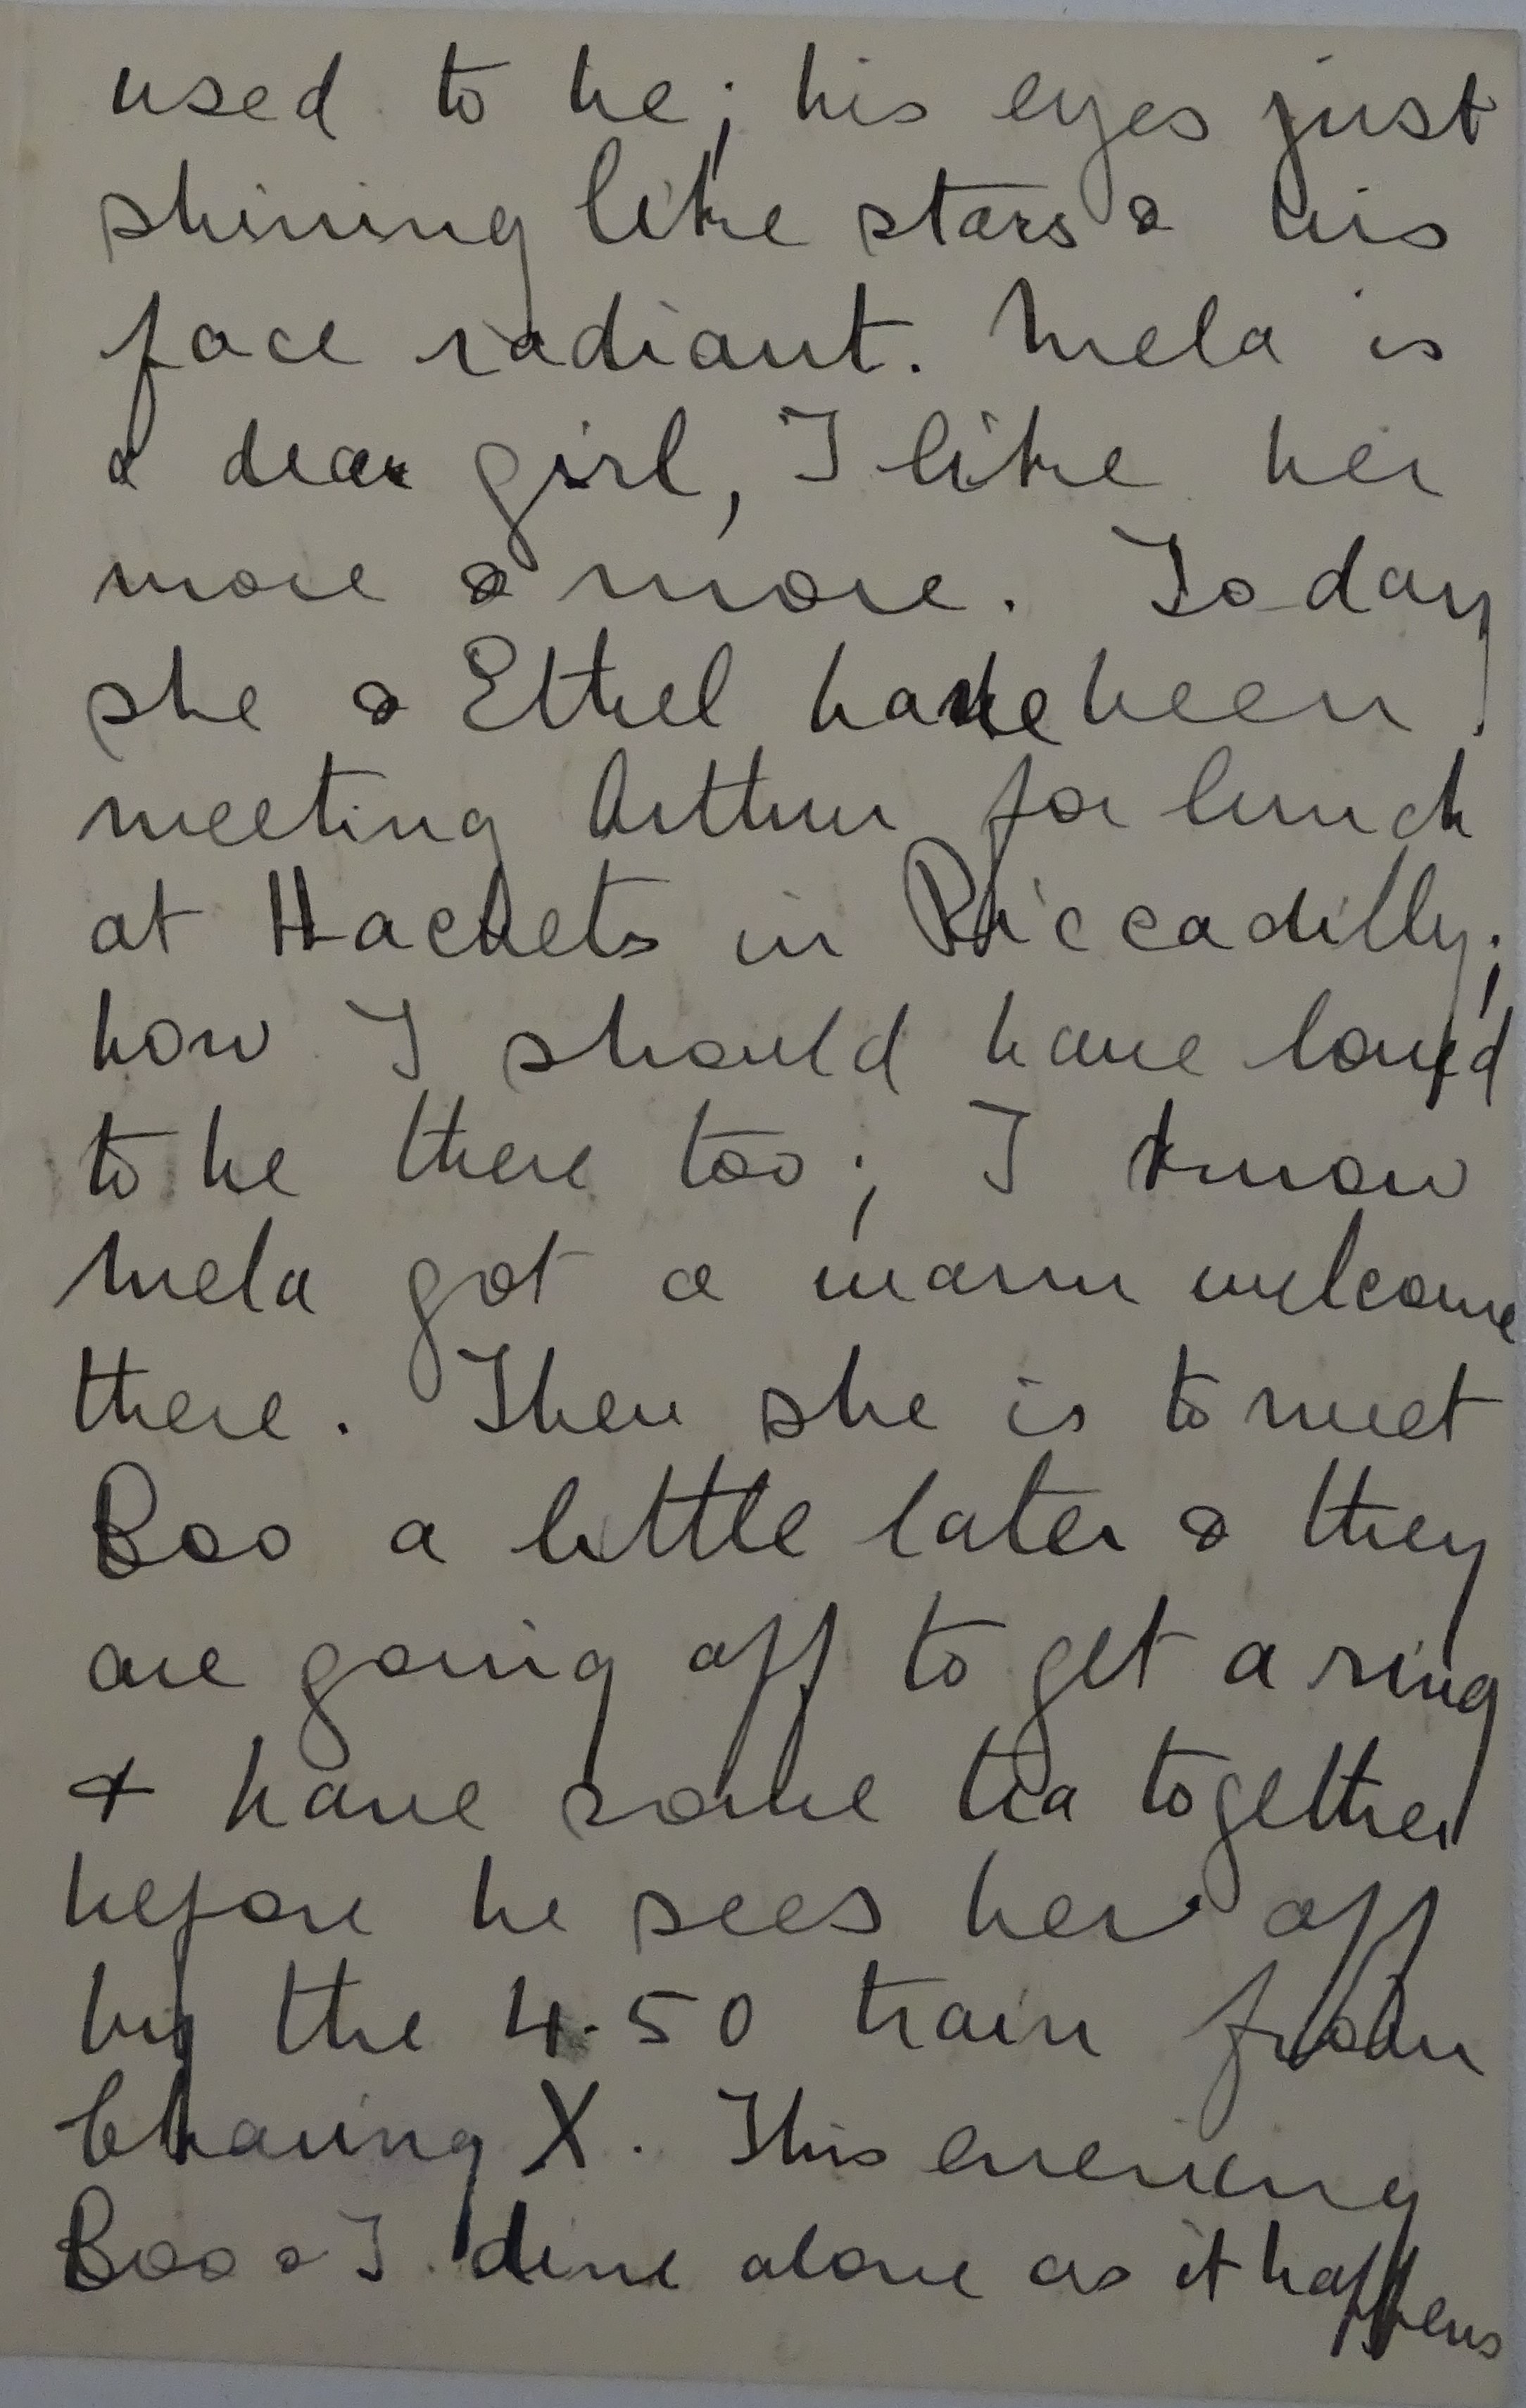 used to be; his eyes just
shining like stars & his
face radiant. Mela is
a dear girl, I like her
more & more. To-day
she & Ethel have been
meeting Arthur for lunch
at Hachets in Piccadilly;
how I should have loved
to be there too; I know
Mela got a warm welcome
there. Then she is to meet
Boo a little later & they
are going off to get a ring
& have some tea together
before he sees her off
by the 4.50 train from
Charing X. This evening
Boo & I dine alone as it happens